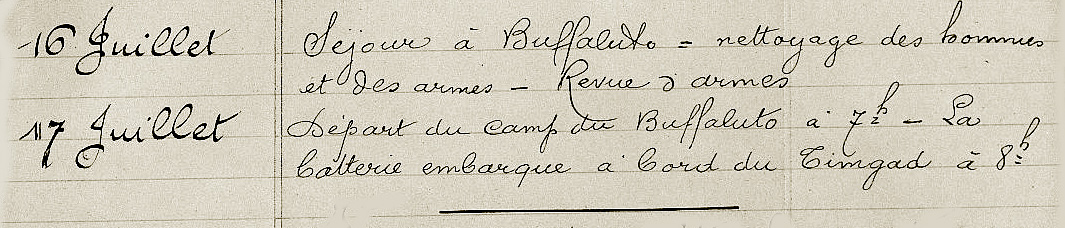 16 Juillet Séjour à Buffaluto = nettoyage des hommes
et des armes - Revue d'armes
17 Juillet Départ du camp du Buffaluto à 7h - La
batterie embarque à bord du Timgad à 8h